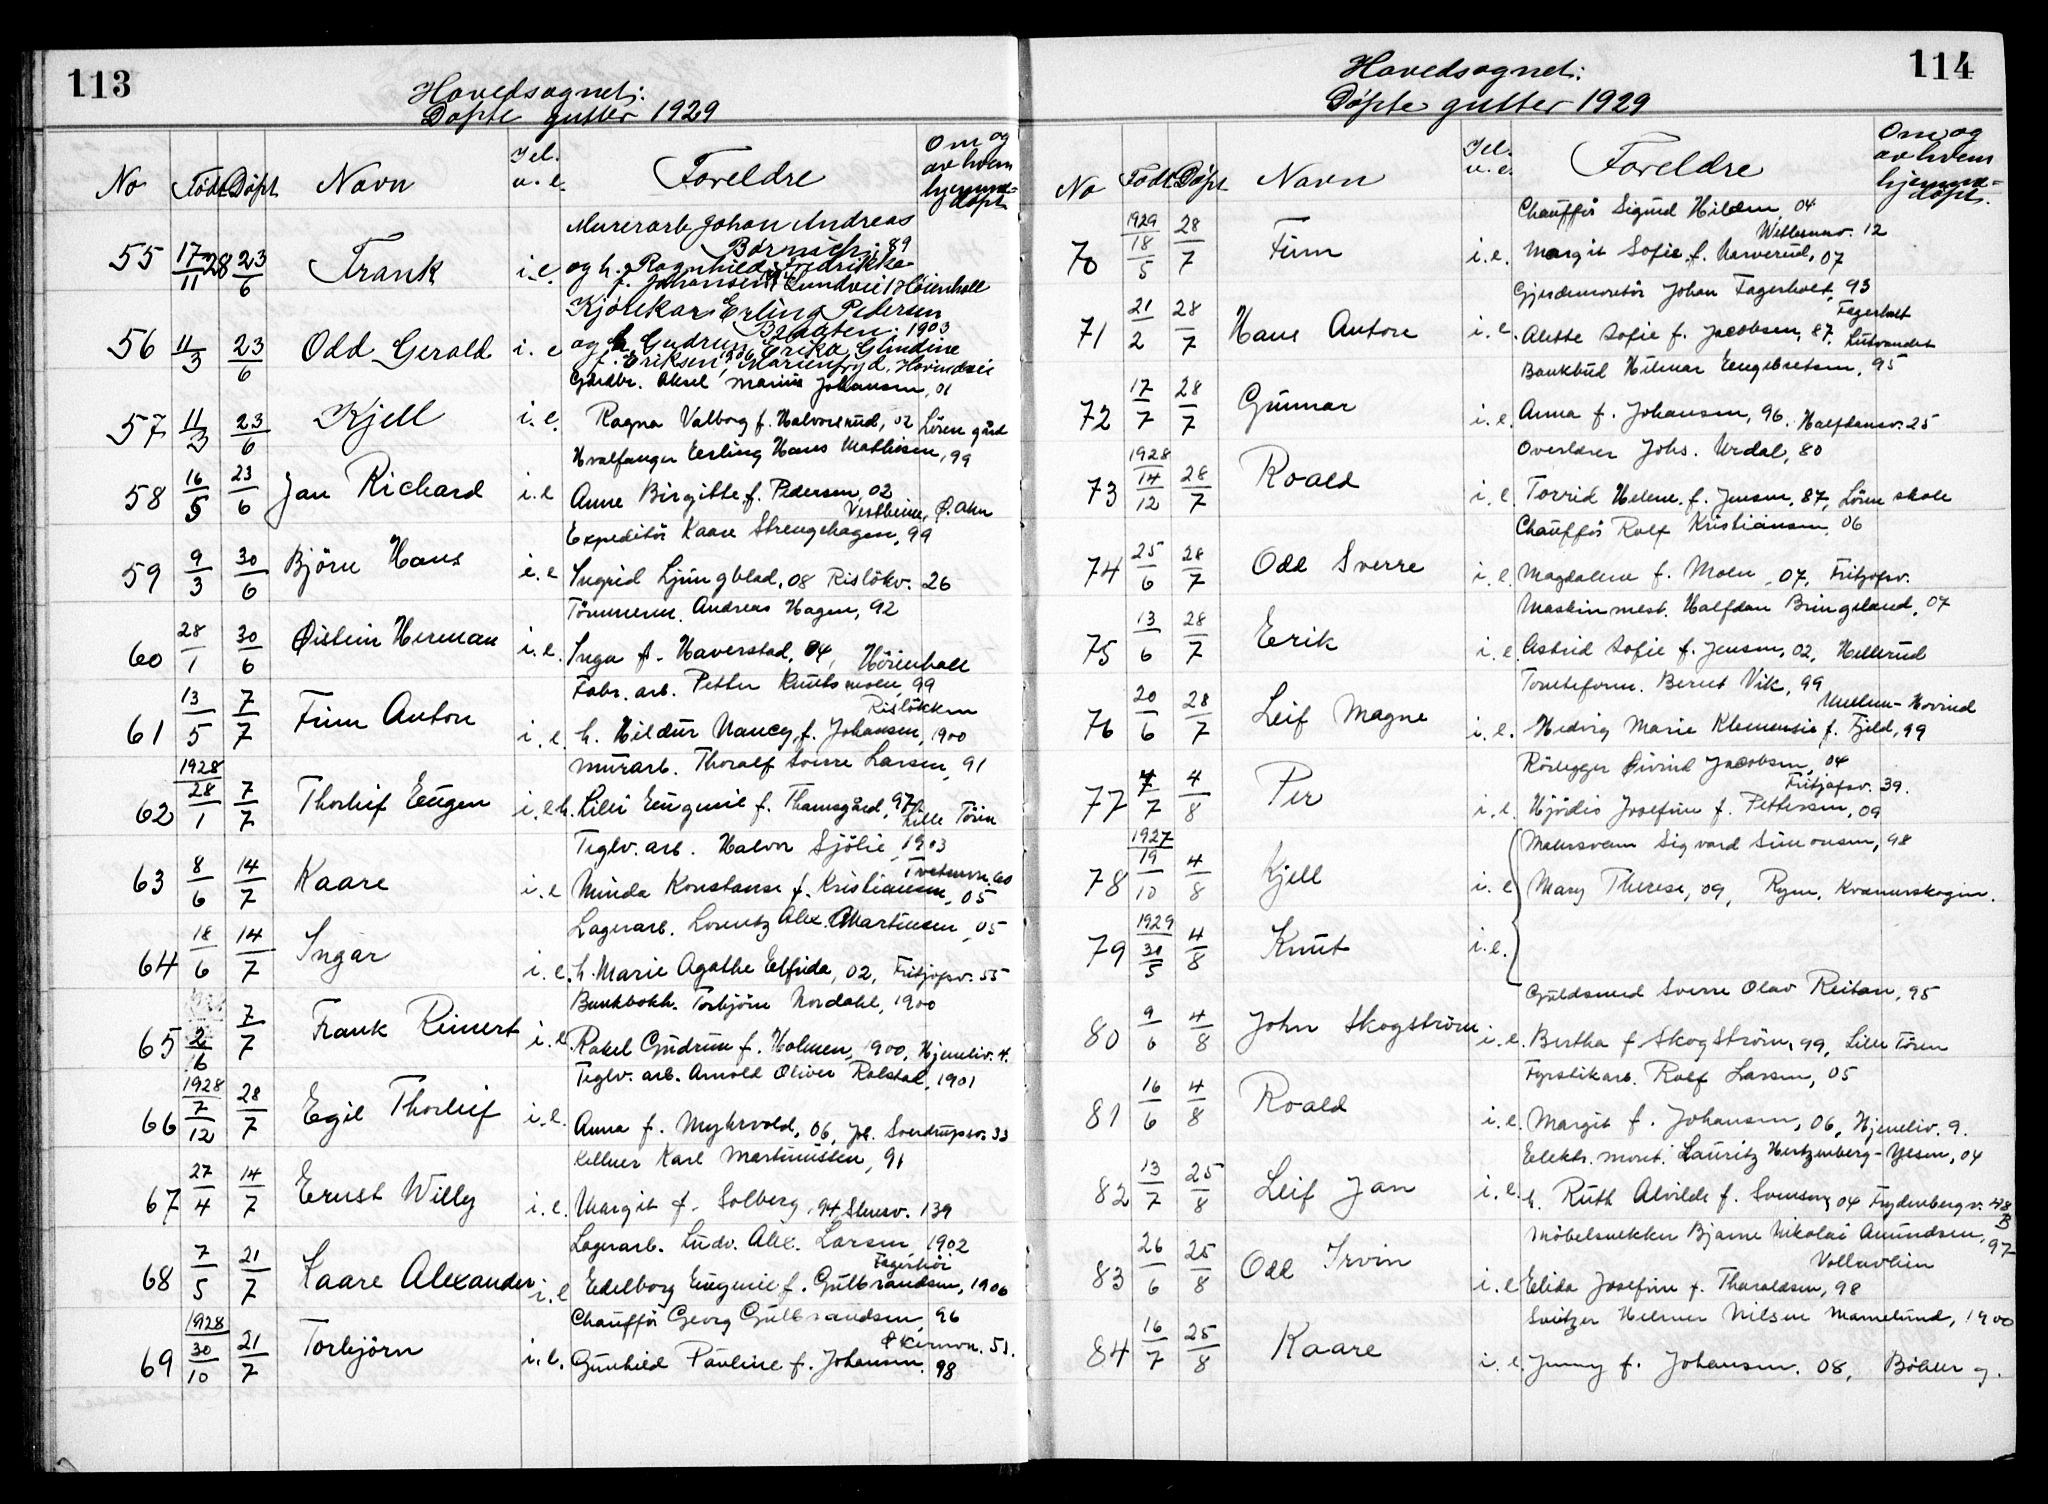 113
Hovedsognet:
Døpte gutter 1929
No Født Døpt Navn I el. u. e. Foreldre Om og av hvem hjemmedøpt
Murerarb Johan Andreas
55 17/11 28 23/6 Frank i. e. og h. Ragnhild Fredrikke
f. Johansen Lundvei Høienhall
Kjørekar Erling Pedersen
Braaten, 1903
56 11/3 23/6 Odd Gerald i. e og h Gudrun Erika
f. Eriksen, 1906, Marienfryd, Hovindvei
Gårdbr. Aksel Marius Johansen, 01
57 11/3 23/6 Kjell i. e. Ragna Valborg f. Halvorsrud, 02 Lören gård
Hvalfanger Erling Hans Mathisen, 99
58 16/5 23/6 Jan Richard i. e Anne Birgitte f. Pedersen, 02
Vestheim, Ø. Akn
Expeditör Kaare Strengehagen, 99
59 9/3 30/6 Björn Hans i. e Ingrid Ljungblad, 08 Risløkv. 26
Tömmerm. Andreas Hagen, 92
60 28/1 30/6 Øistein Herman i. e. Inga f. Haverstad, 04, Höienhall
Fabr. arb. Petter Knutsmoen, 99
Risløkken
61 13/5 7/7 Finn Anton i. e. h. Hildur Nancy f. Johansen, 1900
Murarb. Thoralf Sverre Larsen, 91
62 1928 28/1 7/7 Thorleif Eugen i. e. h. Lilli Eugenie f. Thamsgård, 97
Lille Tören
Teglv. arb. Halvor Sjölie, 1903
Tvetenvn. 60
63 8/6 14/7 Kaare i. e Minda Konstanse f. Kristiansen, 05
Lagerarb. Lorentz Alex. Martinsen, 05
64 18/6 14/7 Ingar i. e. h. Marie Agathe Elfrida, 02, Fritjofsv. 55
Bankbokh. Torbjörn Nordahl, 1900
65 2/6 7/7 Frank Reinert i. e. Rakel Gudrun f. Holmen, 1900, Hjemliv. 4.
Teglv. arb. Arnold Oliver Rolstad, 1901
66 1928 7/12 28/7 Egil Thorleif i. e. Anna f. Myhrvold, 06, Joh. Sverdrupsv. 33
Kellner Karl Martiniussen, 91
67 27/4 14/7 Ernst Willy i. e. Margit f. Solberg, 94, Stensv. 139
Lagerarb. Ludv. Alex. Larsen, 1902
Fagerlis
68 7/5 21/7 Kaare Alexander i. e Edelborg Eugenie f. Gulbrandsen, 1906
Chauffør Georg Gulbrandsen, 96
69 1928 30/10 21/7 Torbjörn i. e. Gunhild Pauline f. Johansen, 98
114
Hovedsognet:
Døpte gutter 1929
No Født Døpt Navn I el. u. e. Foreldre Om og av hvem hjemmedøpt.
Chauffør Sigurd Hilden, 04
70 1929 18/5 28/7 Finn i. e. Margit Sofie f. Narverud, 07
Gjerdemontör Johan Fagerholt, 93
Fagerholt
71 21/2 28/7 Hans Anton i. e. Alette Sofie f. Jacobsen, 87, Lutvandet
Bankbud Hilmar Engebretsen, 95
72 17/7 28/7 Gunnar i. e. Anna f. Johansen, 96. Halfdansv. 25
Overlærer Johs. Urdal, 80
73 1928 14/12 28/7 Roald i. e. Torrid Helene f. Jensen, 87, Lören skole
Chauffør Rolf Kristiansen, 06
74 25/6 28/7 Odd Sverre i. e. Magdalene f. Moen, 07, Fritjofsv.
Maskinmest. Halfdan Bringeland, 07
75 13/6 28/7 Erik i. e. Astrid Sofie f. Jensen, 02, Hellerud
Tomteform. Bernt Vik, 99
76 20/6 28/7 Leif Magne i. e. Hedvig Marie Klemensie f. Fjeld, 99
Rörlegger Øivind Jacobsen, 04
Fritjofsv. 39.
77 4/7 4/8 Per i. e. Hjördis Josefine f. Pettersen, 09
Malersvenn Sigvard Simonsen, 98
78 1927 19/10 4/8 Kjell i. e Mary Therese, 09, Ryen, Kværnerskogen.
79 1929 30/5 4/8 Knut i. e.
Guldsmed Sverre Olav Reitan, 95
80 9/6 4/8 John Skogström i. e. Bertha f Skogström, 99, Lille Tören
Fyrstikarb. Rolf Larsen, 05
81 16/6 4/8 Roald i. e. Margit f. Johansen, 06, Hjemliv. 9.
Elektr. mont. Lauritz Hertzenberg-Ylsen, 04
82 13/7 25/8 Leif Jan i. e. h. Ruth Alvilde f. Svensen, 04 Frydenbergv. 48 B
Möbelsnekker Bjarne Nikolai Amundsen, 97
Vollavlien
83 26/6 25/8 Odd Irvin i. e Elida Josefine f. Tharaldsen, 98
Snitzer Helmer Nilsen Mamelund, 1900
84 16/7 25/8 Kaare i. e. Jenny f. Johansen. 08, Böler g.